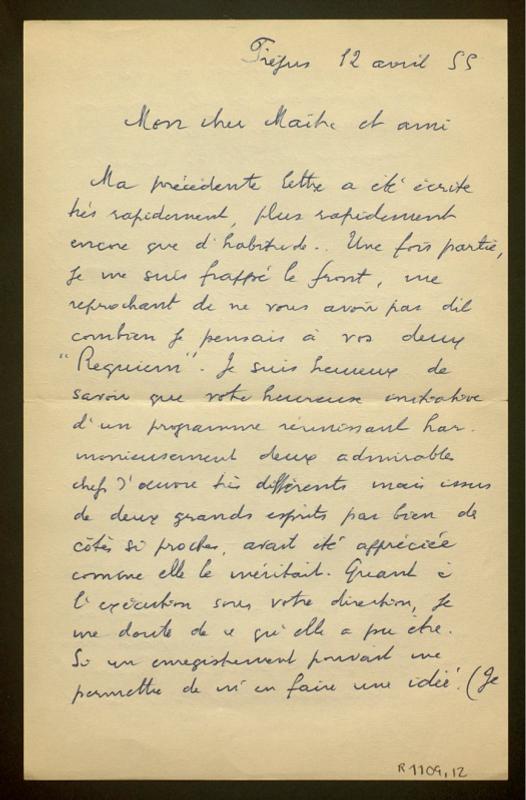 Fréjus 12 avril 55
Mon cher Maître et ami
Ma précédente lettre a été écrite
très rapidement, plus rapidement
encore que d'habitude.. Une fois partie,
je me suis frappé le front, me
reprochant de ne vous avoir pas dit
combien je pensais à vos deux
"Requiem". Je suis heureux de
savoir que votre heureuse initiative
d'un programme réunissant har-
monieusement deux admirables
chefs d'œuvre très différents mais issus
de deux grands esprits par bien de
côtés si proches, avait été appréciée
comme elle le méritait. Quant à
l'exécution sous votre direction, je
me doute de ce qu'elle a pu être.
Si un enregistrement pouvait me
permettre de m'en faire une idée! (Je
R 1109,12